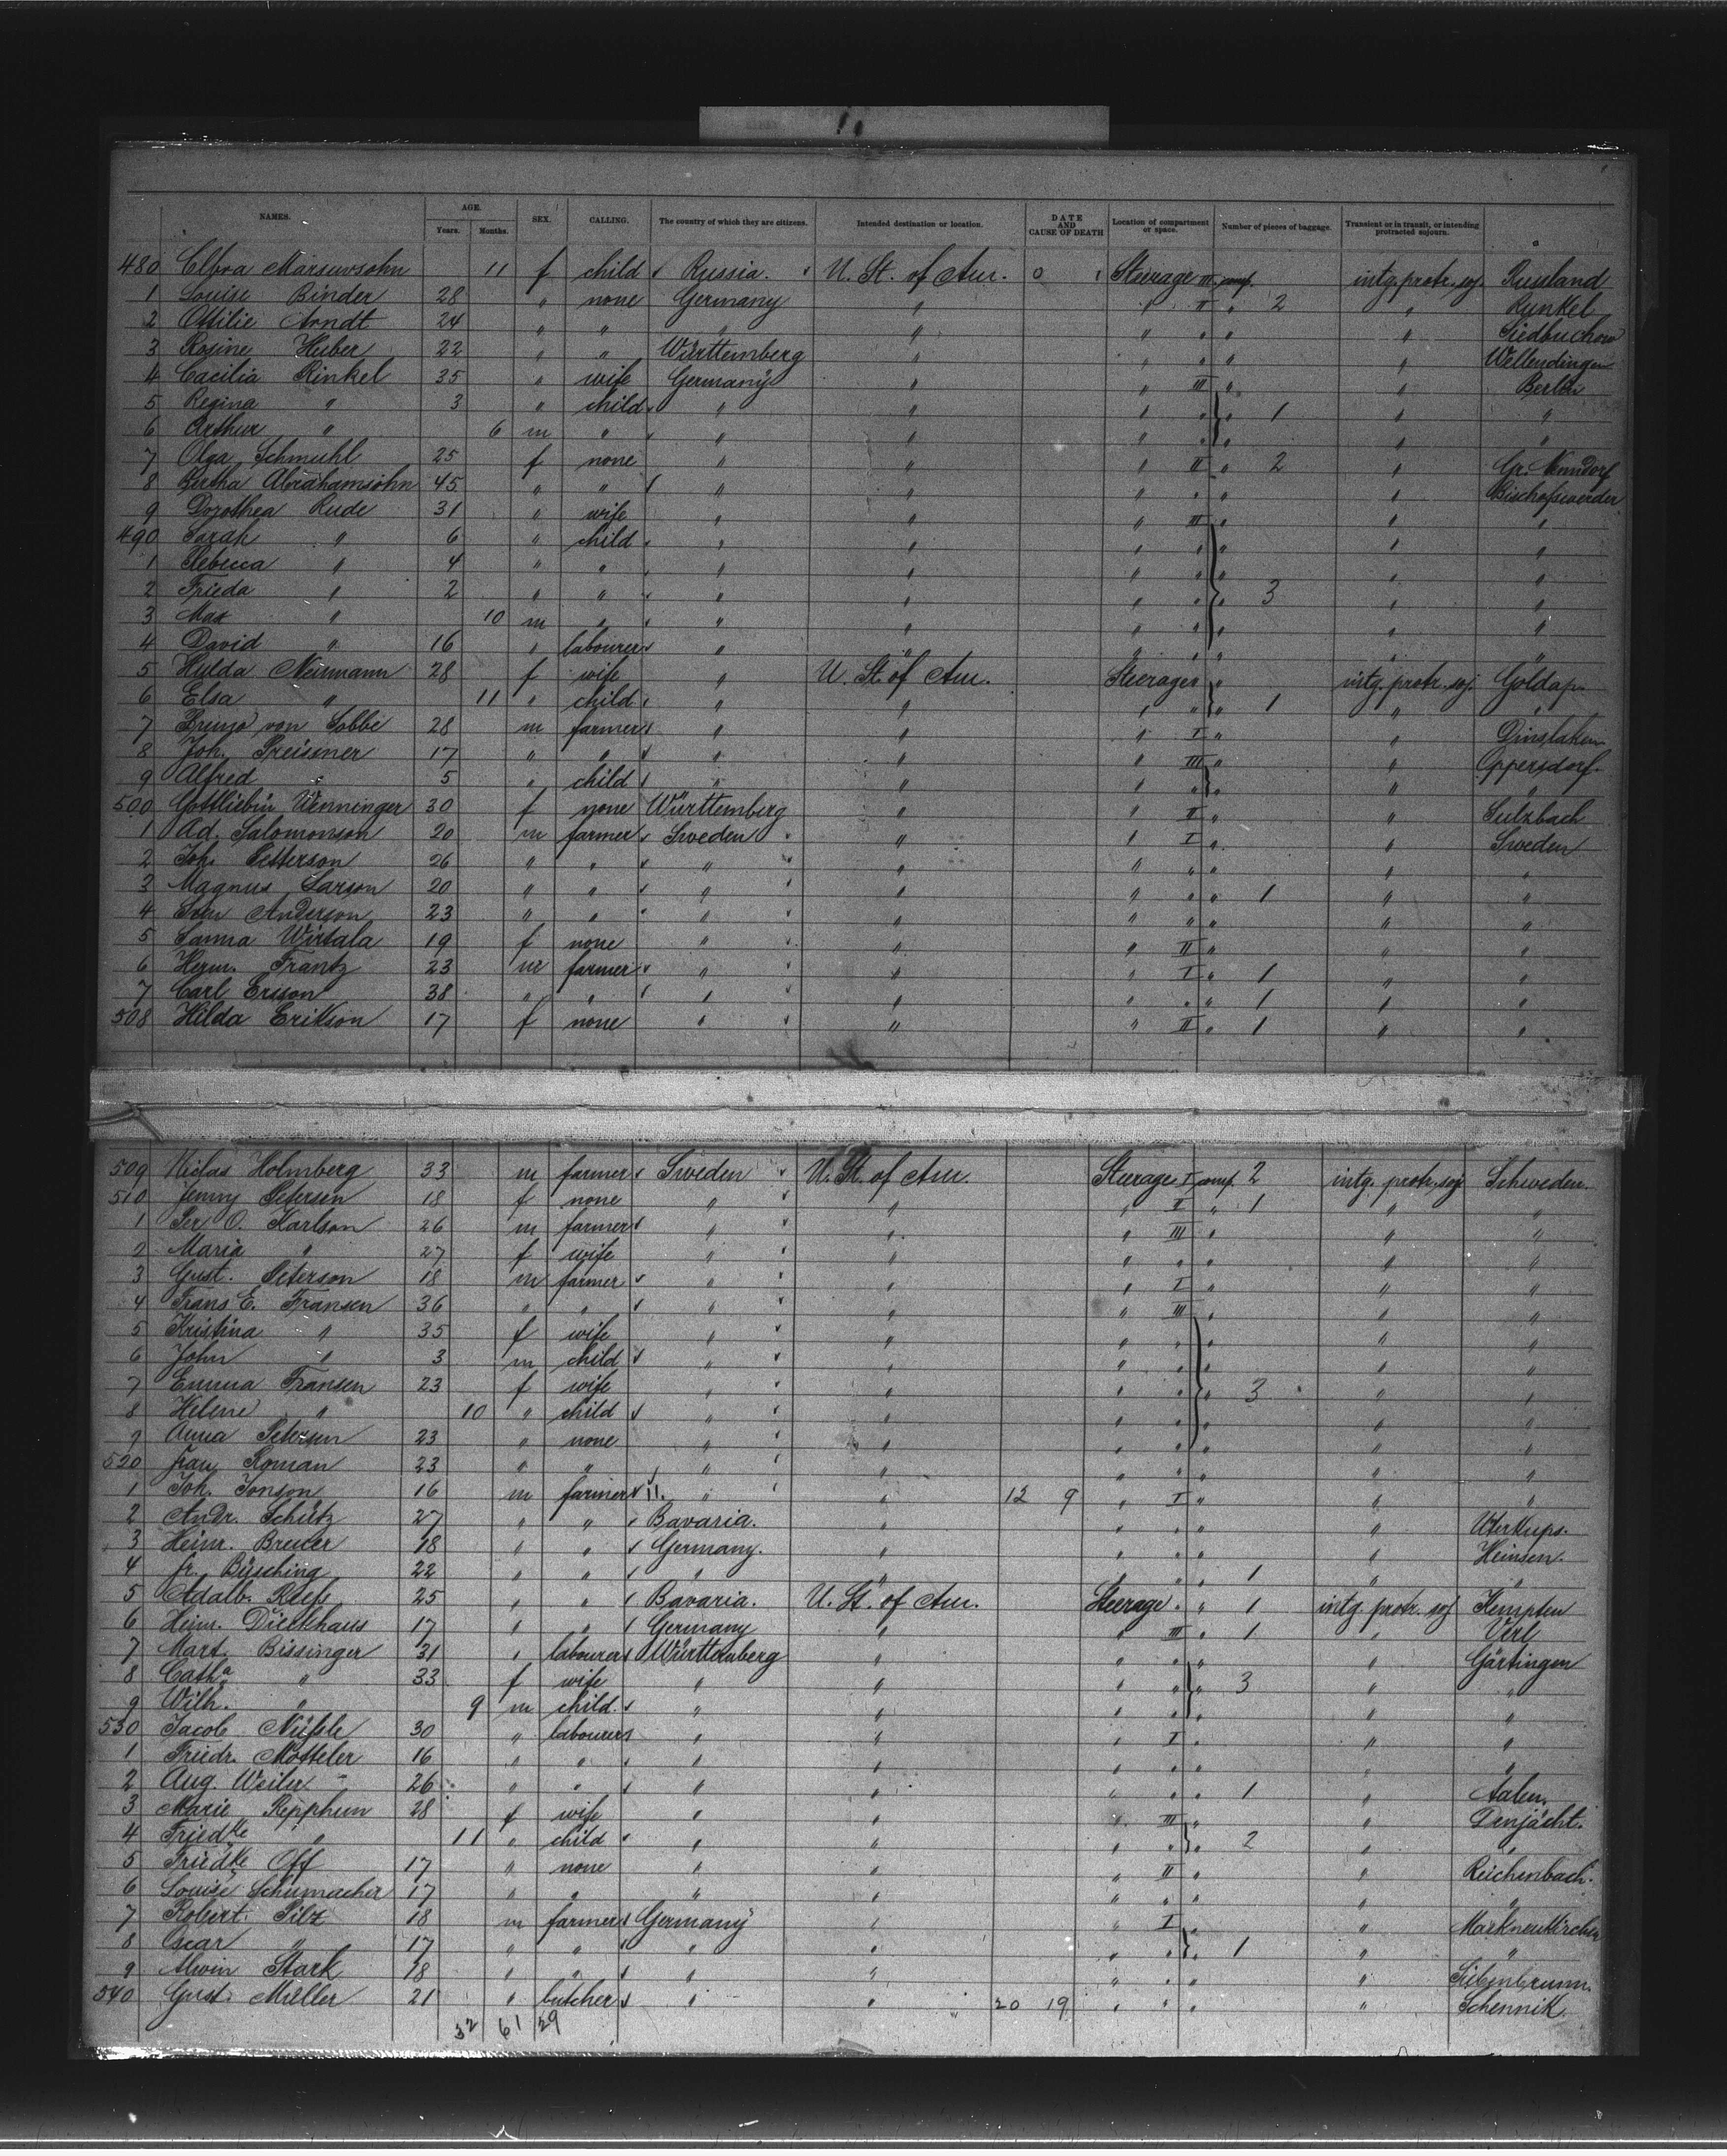 NAMES. AGE. Years. Months. SEX. CALLING. The country of which they are citizens. Intended destination or location. DATE AND CAUSE OF DEATH Location of compartment or space. Number of pieces of baggage. Transient or in transit, or intending protracted sojourn.
480 11 f child Russia. U. St. of Am. 0 Steerage III comp. intg. protr. soj. Russland
1 Louise Binder 28 " none Germany " " II " 2 " Runkel
2 Ottilie Arndt 24 " " " " " " " "
3 Rosine Huber 22 " " Württemberg " " " " " Wellendingen
4 Cacilia Rinkel 35 " wife Germany " " III " " Berlin
5 Regina " 3 " child " " " " " 1 " "
6 Arthur " 6 m " " " " " " " "
7 Olga Schmuhl 25 f none " " " II " 2 " Gr. Nenndorf
8 Bertha Abrahamsohn 45 " " " " " " " " Bischofswerder
9 Dorothea Rude 31 " wife " " " III " " "
490 Sarah " 6 " child " " " " " " "
1 Rebecca " 4 " " " " " " " " "
2 Frieda " 2 " " " " " " " 3 " "
3 Max " 10 m " " " " " " " "
4 David " 16 " labourer " " " " " " "
5 Hulda Neumann 28 f wife " U. St. of Am. Steerage " " intg. protr. soj. Goldap.
6 Elsa " 11 " child " " " " " 1 " "
7 Bruno von Lobbe 28 m farmer " " " I " " Dinslaken
8 Joh. Preissner 17 " " " " " III " " Oppersdorf.
9 Alfred " 5 " child " " " " " " "
500 Gottliebin Wenninger 30 f none Württemberg " " II " " Sulzbach
1 Ad. Salomonson 20 m farmer Sweden " " I " " Sweden
2 Joh. Petterson 26 " " " " " " " " "
3 Magnus Larson 20 " " " " " " " 1 " "
4 Sven Anderson 23 " " " " " " " " "
5 Sanna Wirtala 19 f none " " " II " " "
6 Herm. Frantz 23 m farmer " " " I " 1 " "
7 Carl Ersson 38 " " " " " " " 1 " "
508 Hilda Erikson 17 f none " " " II " 1 " "
509 Niclas Holmberg 33 m farmer Sweden U. St. of Am. Steerage I comp. 2 intg. protr. soj Schweden.
510 Jenny Petersen 18 f none " " " II " 1 " "
1 Per O. Karlson 26 m farmer " " " III " " "
2 Maria " 27 f wife " " " " " " "
3 Gust. Peterson 18 m farmer " " " I " " "
4 Frans E. Fransen 36 " " " " " III " " "
5 Kristina " 35 f wife " " " " " " "
6 John " 3 m child " " " " " " "
7 Emma Fransen 23 f wife " " " " " 3 " "
8 Helene " 10 " child " " " " " " "
9 Anna Petersen 23 " none " " " " " " "
520 Frau Roman 23 " " " " " " " " "
1 Joh. Jonson 16 m farmer " " 12 9 " I " " "
2 Andr. Schütz 27 " " Bavaria. " " " " "
3 Heinr. Breuer 18 " " Germany. " " " " " Heinsen.
4 fr. Büsching 22 " " " " " " " 1 " "
5 Adalb. 25 " " Bavaria. U. St. of Am. Steerage " " 1 intg. protr. soj Kempten
6 Heinr. Dieckhaus 17 " " Germany " " III " 1 " Verl
7 Mart. Bissinger 31 " labourer Württemberg " " " " " Gärtingen
8 Catha " 33 f wife " " " " " 3 " "
9 Wilh. " 9 m child " " " " " " "
530 Jacob Nüssle 30 " labourer " " " I " " "
1 Friedr. Motteler 16 " " " " " " " " "
2 Aug. Weiler 26 " " " " " " " 1 " Aalen.
3 Marie Repphun 28 f wife " " " III " " Denjächt.
4 Friedke " 11 " child " " " " " 2 " "
5 Friedke Off 17 " none " " " II " " Reichenbach.
6 Louise Schumacher 17 " " " " " " " " "
7 Robert Pilz 18 m farmer Germany " " I " " Markneukirchen
8 Oscar " 17 " " " " " " " 1 " "
9 Alwin Stark 18 " " " " " " " " Siebenbrunn.
540 Gust. Müller 21 " butcher " " 20 19 " " " " Schennik
32 61 29